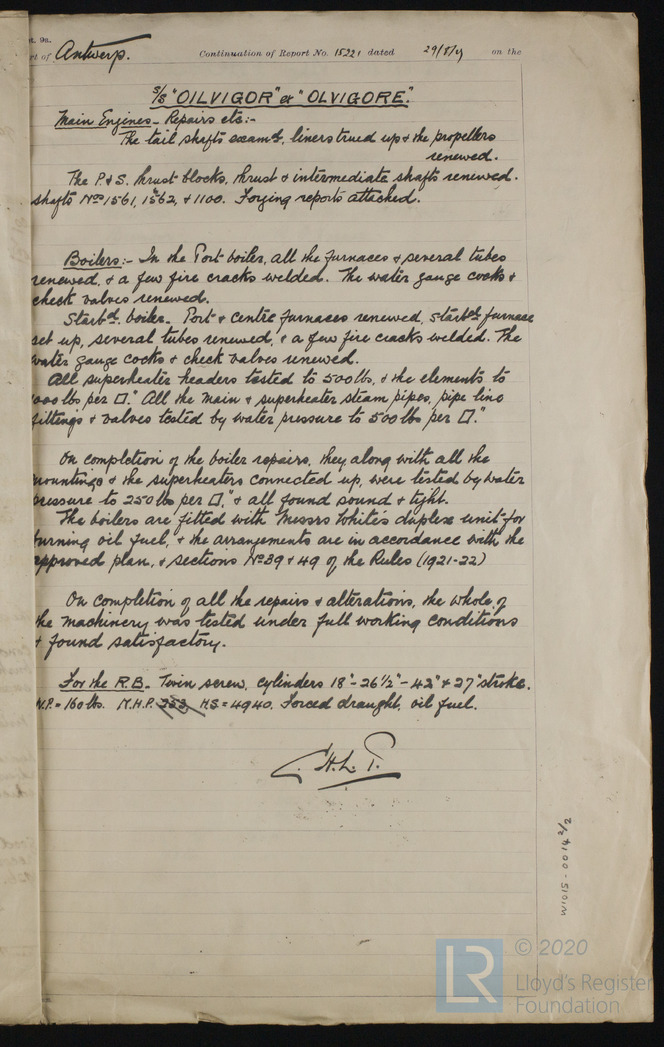 Antwerp. Continuation of Report No. 15221 dated 29/8/ on the
S/S "OILVIGOR" ex "OLVIGORE".
Main Engines - Repairs etc:-
The tail shafts examd, liners trued up & the propellers
renewed.
The P & S. thrust blocks, thrust & intermediate shafts renewed.
shafts Nos 1561, 1562, & 1100. Forging reports attached.
Boilers:- In the Port boiler, all the furnaces & several tubes
renewed, & a few fire cracks welded. The water gauge cocks &
check valves renewed.
Starbd. boiler - Port & centre furnaces renewed, starbd furnace
set up, several tubes renewed, & a few fire cracks welded. The
water gauge cocks & check valves renewed.
All superheater headers tested to 500 lbs, & the elements to
000 lbs per □." All the main & superheater steam pipes, pipe line
fittings & valves tested by water pressure to 500 lbs per □."
On completion of the boiler repairs, they along with all the
mountings & the superheaters connected up, were tested by water
pressure to 250 lbs per □," & all found sound & tight.
The boilers are fitted with Messrs White's duplex unit for
burning oil fuel, & the arrangements are in accordance with the
approved plan, & sections No 39 & 49 of the Rules (1921-22)
On completion of all the repairs & alterations, the whole of
the machinery was tested under full working conditions
& found satisfactory.
For the R.B. - Twin screw, cylinders 18" - 26½" - 42" & 27" stroke.
W.P. = 160 lbs. N.H.P. 353 HS = 4940. Forced draught, oil fuel.
C.H.L.T.
W1015-0014 2/2
LR
© 2020
Lloyd's Register
Foundation